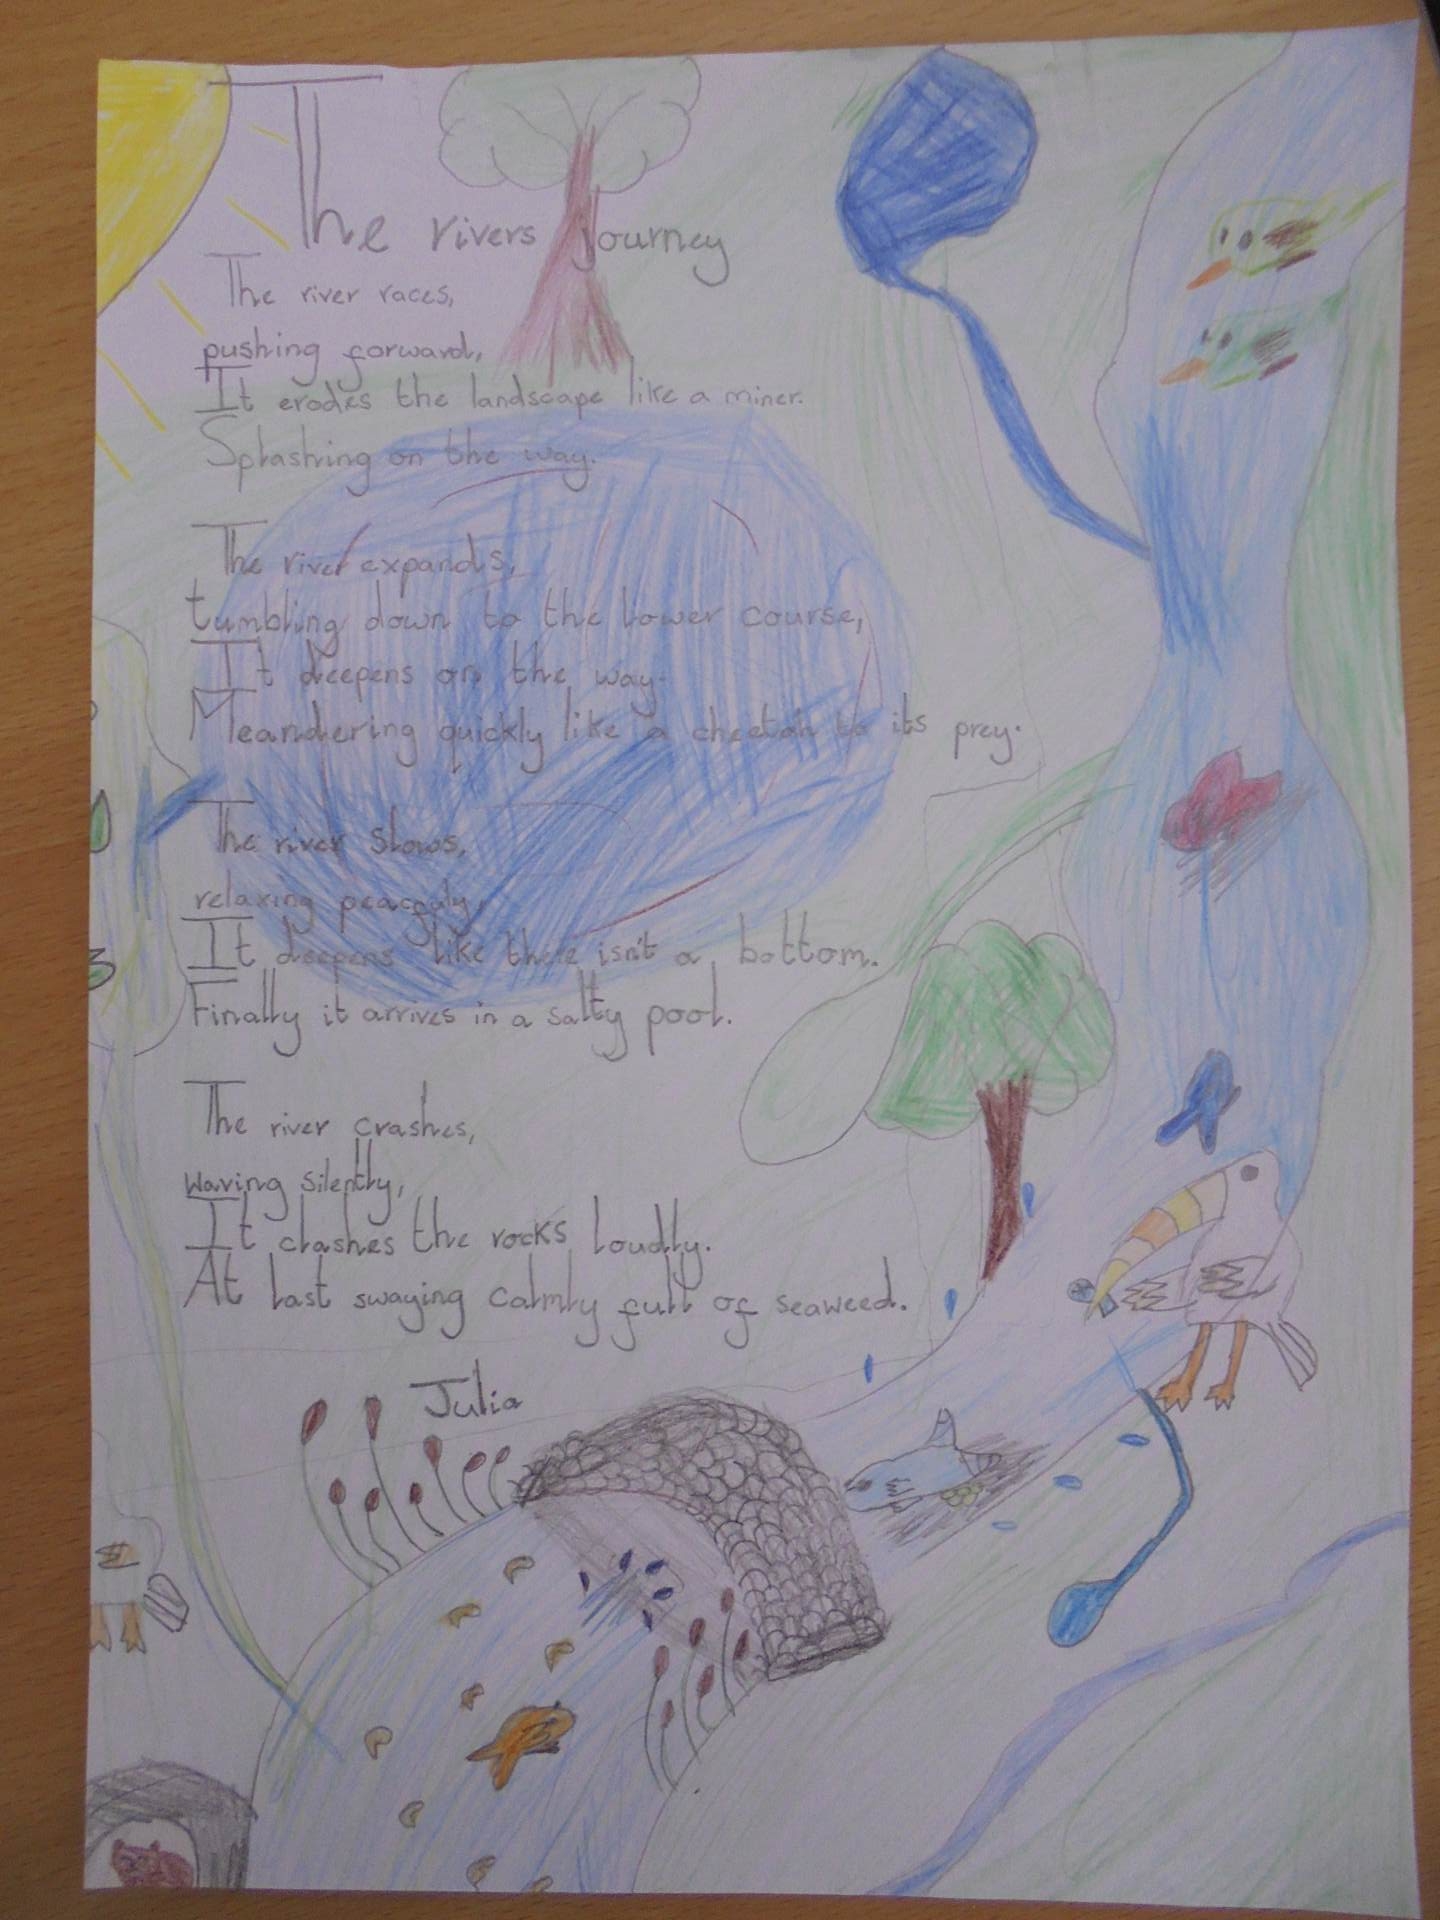 The rivers journey
The river races,
pushing forward,
It erodes the landscape like a miner.
Splashing on the way.
The river expands,
tumbling down to the lower course,
It deepens on the way.
Meandering quickly like a cheetah to its prey.
The river slows,
relaxing peacfuly,
It deepens like there isn't a bottom.
Finally it arrives in a salty pool.
The river crashes,
waving silently,
It clashes the rocks loudly.
At last swaying calmly full of seaweed.
Julia